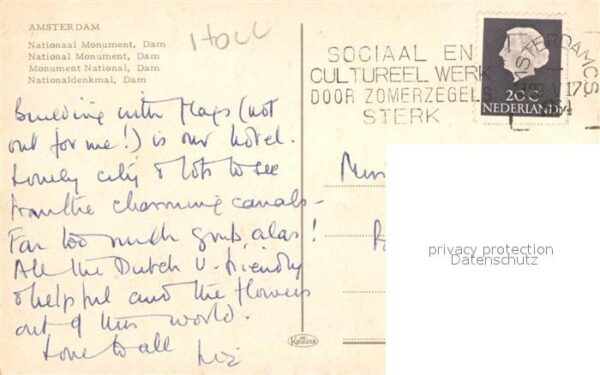 AMSTERDAM
Holl
Nationaal Monument, Dam
National Monument, Dam
Monument National, Dam
Nationaldenkmal, Dam
SOCIAAL EN
CULTUREEL WERK
DOOR ZOMERZEGELS
STERK
AMSTERDAM CS
17
20 c
NEDERLAND
Building with flags (not
out for me!) is our hotel.
Lovely city & lots to see
from the charming canals –
Far too much grub, alas!
All the Dutch v. friendly
& helpful and the flowers
out of this world.
Love to all
Liz
privacy protection
Datenschutz